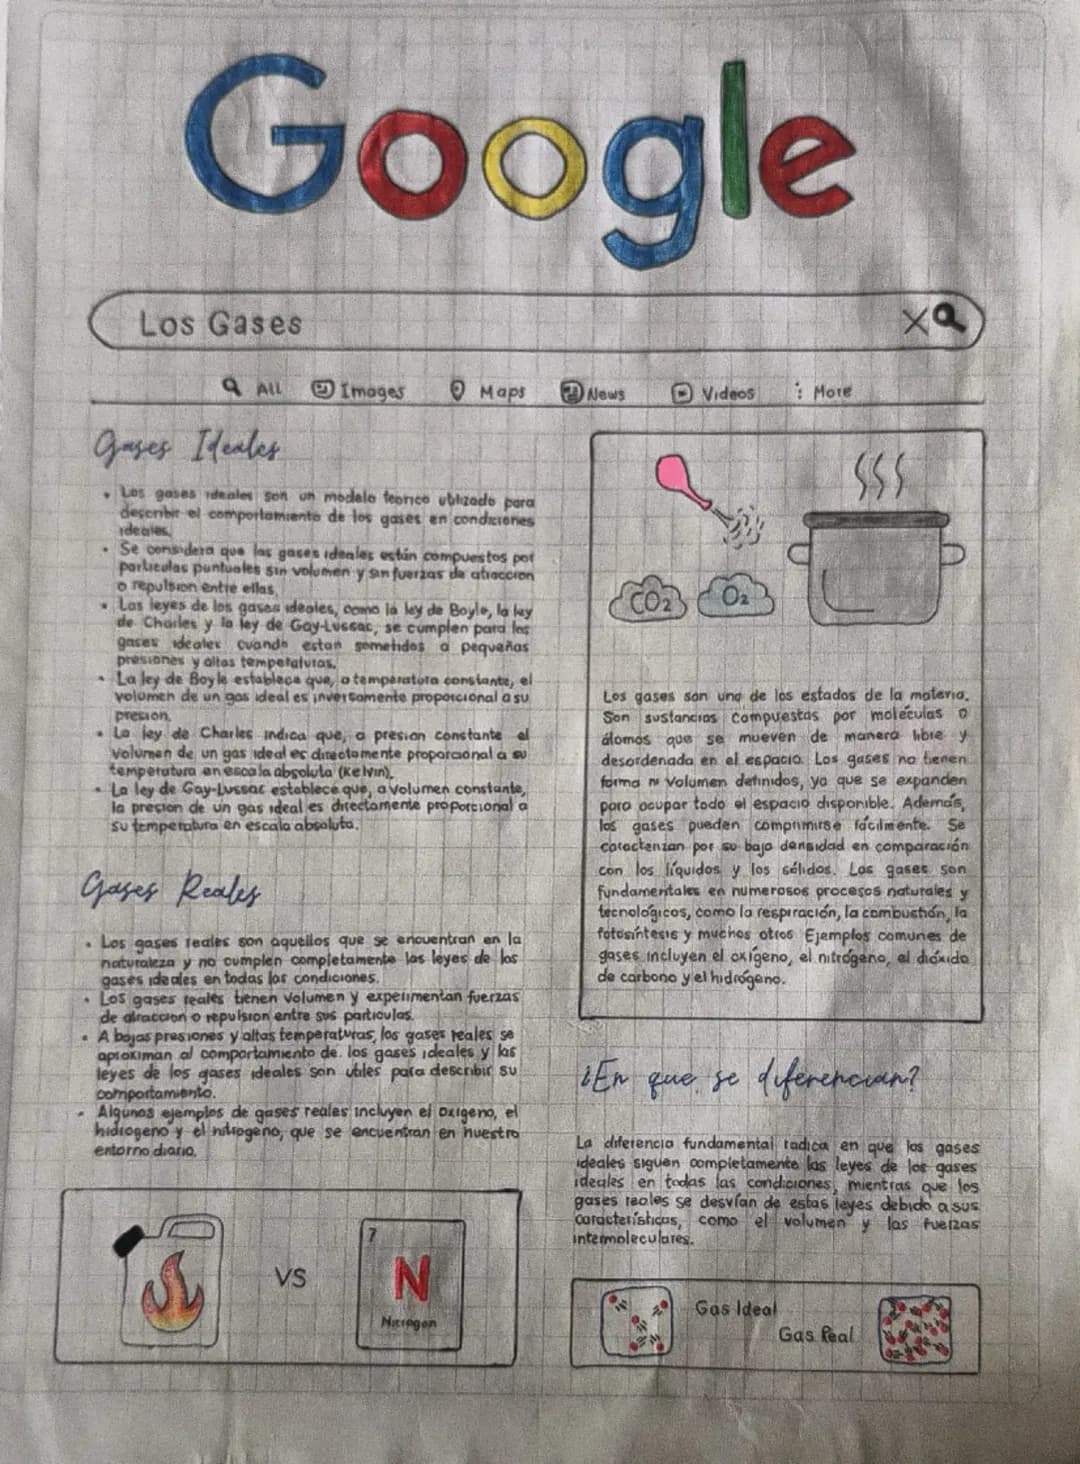 Google
Los Gases
All Images Maps News Videos More
Gases Ideales
• Los gases ideales son un modelo teorico utilizado para
describir el comportamiento de los gases en condiciones
ideales.
• Se considera que los gases ideales están compuestos por
particulas puntuales sin volumen y sin fuerzas de atraccion
o repulsion entre ellas.
• Las leyes de los gases ideales, como la ley de Boyle, la ley
de Charles y la ley de Gay-Lussac, se cumplen para los
gases ideales cuando estan sometidos a pequeñas
presiones y altas temperaturas.
• La ley de Boyle establece que, a temperatura constante, el
volumen de un gas ideal es inversamente proporcional a su
presion.
• La ley de Charles indica que, a presion constante el
volumen de un gas ideal es directamente proporcional a su
temperatura en escala absoluta (Kelvin).
• La ley de Gay-Lussac establece que, a volumen constante,
la presion de un gas ideal es directamente proporcional a
su temperatura en escala absoluta.
Gases Reales
• Los gases reales son aquellos que se encuentran en la
naturaleza y no cumplen completamente las leyes de los
gases ideales en todas las condiciones.
• Los gases reales tienen volumen y experimentan fuerzas
de atraccion o repulsion entre sus particulas.
• A bajas presiones y altas temperaturas, los gases reales se
aproximan al comportamiento de los gases ideales y las
leyes de los gases ideales son utiles para describir su
comportamiento.
• Algunos ejemplos de gases reales incluyen el oxigeno, el
hidrogeno y el nitrogeno, que se encuentran en nuestro
entorno diario.
VS
7
N
Nitrogen
CO2
O2
Los gases son uno de los estados de la materia.
Son sustancias compuestas por moléculas o
átomos que se mueven de manera libre y
desordenada en el espacio. Los gases no tienen
forma ni volumen definidos, ya que se expanden
para ocupar todo el espacio disponible. Además,
los gases pueden comprimirse fácilmente. Se
caracterizan por su baja densidad en comparación
con los líquidos y los sólidos. Los gases son
fundamentales en numerosos procesos naturales y
tecnológicos, como la respiración, la combustión, la
fotosíntesis y muchos otros Ejemplos comunes de
gases incluyen el oxígeno, el nitrógeno, el dióxido
de carbono y el hidrógeno.
¿En que se diferencian?
La diferencia fundamental radica en que los gases
ideales siguen completamente las leyes de los gases
ideales en todas las condiciones, mientras que los
gases reales se desvían de estas leyes debido a sus
características, como el volumen y las fuerzas
intermoleculares.
Gas Ideal
Gas Real